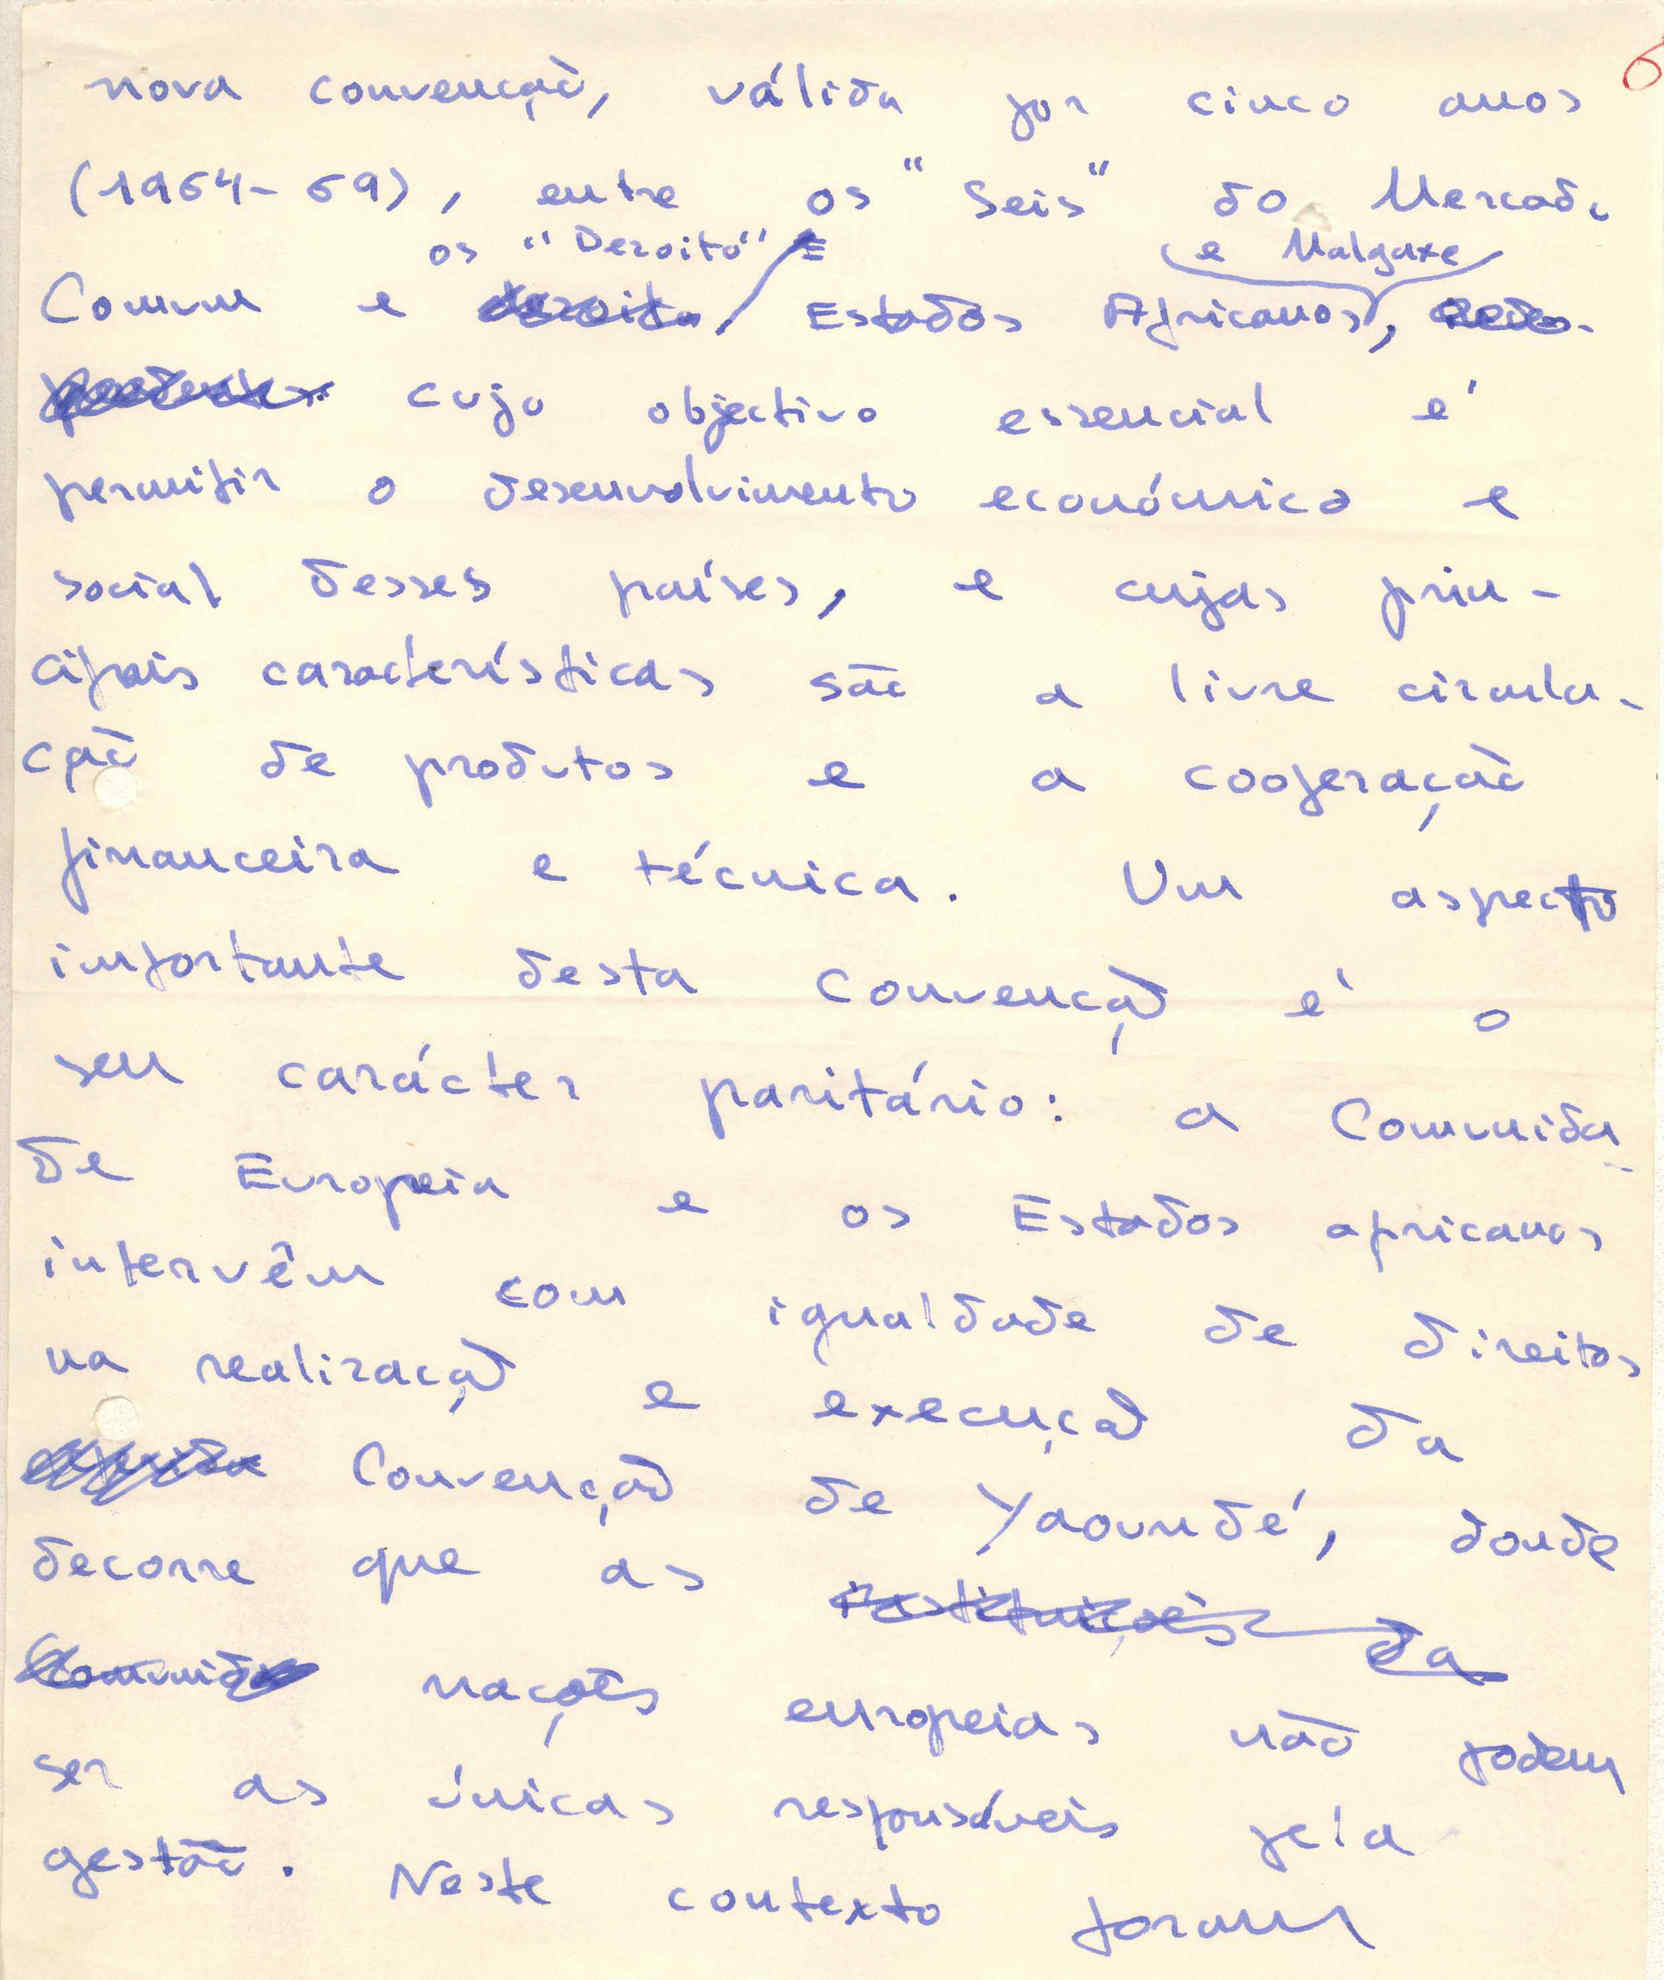 6
nova convenção, válida por cinco anos
(1964-69), entre os "Seis" do Mercado
os "Dezoito" e Malgaxe
Comum e dezoito, Estados Africanos,
cujo objectivo essencial é
permitir o desenvolvimento económico e
social desses países, e cujas prin-
cipais características são a livre circula-
ção de produtos e a cooperação
financeira e técnica. Um aspecto
importante desta Convenção é o
seu carácter paritário: a Comunida-
de Europeia e os Estados africanos
intervêm com igualdade de direitos
na realização e execução da
Convenção de Yaoundé, donde
decorre que as instituições da
Comunida nações europeias não podem
ser as únicas responsáveis pela
gestão. Neste contexto foram